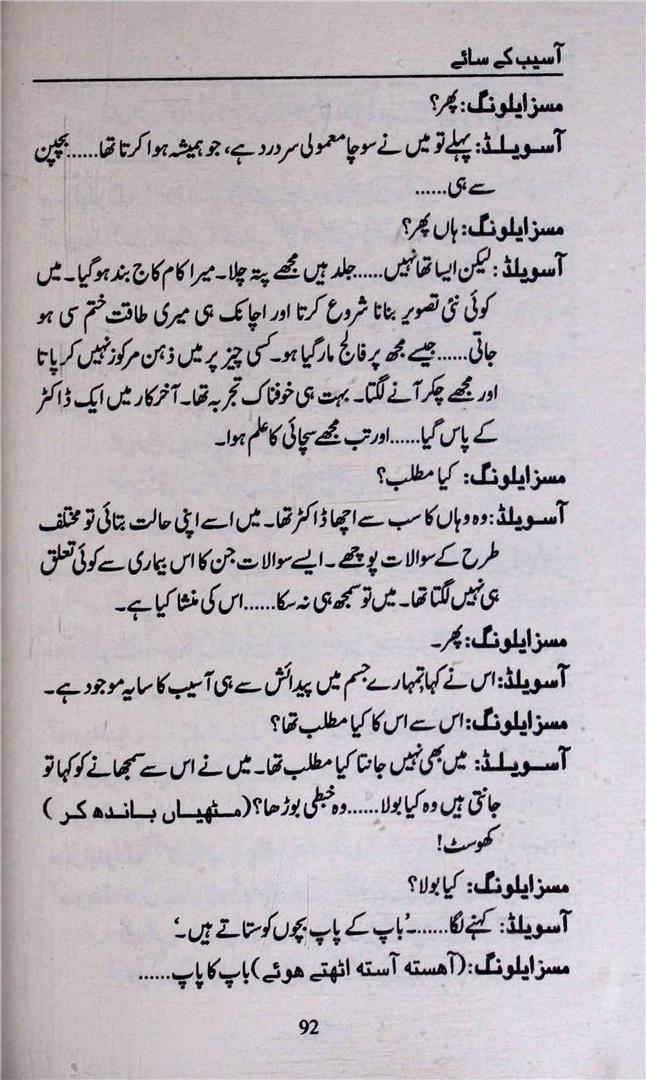 آسیب کے سائے
مسز ایلونگ: پھر؟
آسویلڈ: پہلے تو میں نے سوچا معمولی سر درد ہے، جو ہمیشہ ہوا کرتا تھا......بچپن
سے ہی......
مسز ایلونگ: ہاں پھر؟
آسویلڈ: لیکن ایسا تھا نہیں......جلد ہیں مجھے پتہ چلا۔ میرا کام کاج بند ہو گیا۔ میں
کوئی نئی تصویر بنانا شروع کرتا اور اچانک ہی میری طاقت ختم سی ہو
جاتی......جیسے مجھ پر فالج مار گیا ہو۔ کسی چیز پر میں ذہن مرکوز نہیں کر پاتا
اور مجھے چکر آنے لگتا۔ بہت ہی خوفناک تجربہ تھا۔ آخر کار میں ایک ڈاکٹر
کے پاس گیا......اور تب مجھے سچائی کا علم ہوا۔
مسز ایلونگ: کیا مطلب؟
آسویلڈ: وہ وہاں کا سب سے اچھا ڈاکٹر تھا۔ میں اسے اپنی حالت بتائی تو مختلف
طرح کے سوالات پوچھے۔ ایسے سوالات جن کا اس بیماری سے کوئی تعلق
ہی نہیں لگتا تھا۔ میں تو سمجھ ہی نہ سکا......اس کی منشا کیا ہے۔
مسز ایلونگ: پھر۔
آسویلڈ: اس نے کہا تمہارے جسم میں پیدائش سے ہی آسیب کا سایہ موجود ہے۔
مسز ایلونگ: اس سے اس کا کیا مطلب تھا؟
آسویلڈ: میں بھی نہیں جانتا کیا مطلب تھا۔ میں نے اس سے سمجھانے کو کہا تو
جانتی ہیں وہ کیا بولا......وہ خبطی بوڑھا؟ (مٹھیاں باندھ کر)
کھوسٹ!
مسز ایلونگ: کیا بولا؟
آسویلڈ: کہنے لگا......۔'باپ کے پاپ بچوں کو ستاتے ہیں۔'
مسز ایلونگ: (آہستہ آستہ اٹھتے ہوئے) باپ کا پاپ......
92